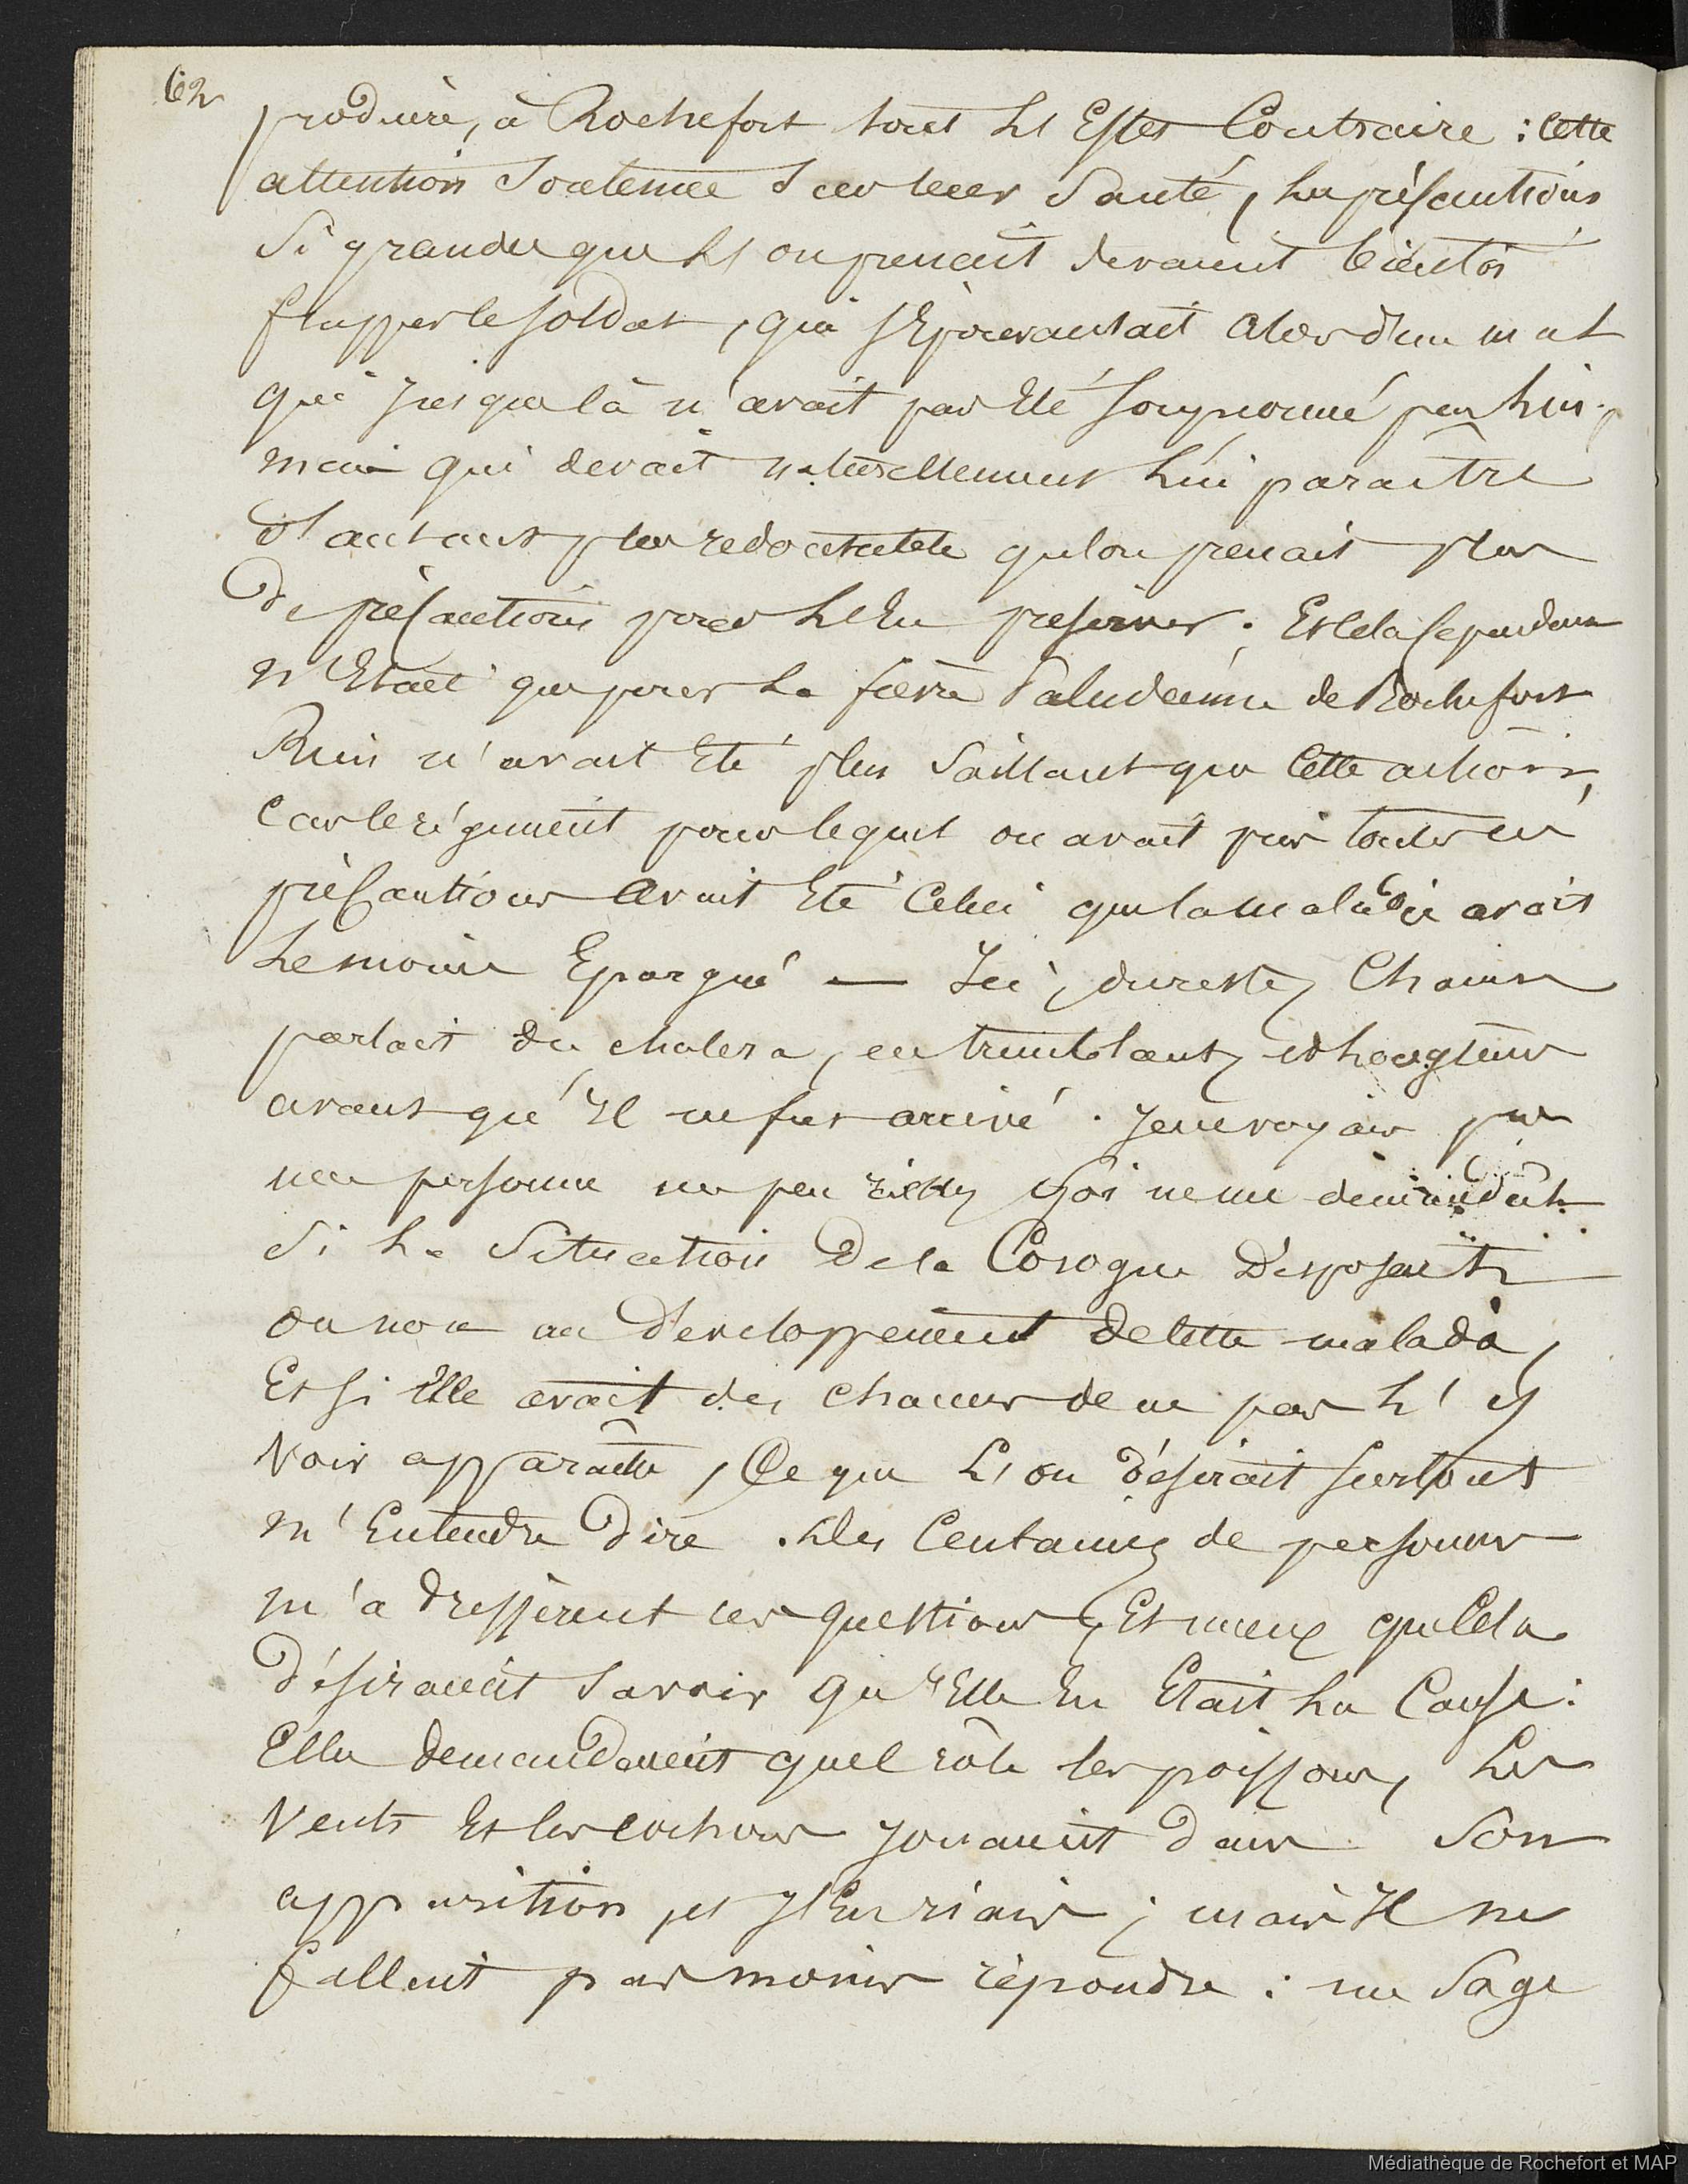 62
produire, à Rochefort tout l'Effet Contraire : cette
attention Soutenue Sur leur Santé, les présautions
Si grandes que l'on prenait devaient bientôt
frapper le soldat, qui s'Epouvantait alors d'un mal
qui jusque là n'avait pas Eté soupçonné par lui,
mais qui devait naturellement lui paraître
d'autant plus redoutable qu'lon prenait plus
de présautions pour l'En preserver. Et cela cependant
n'Etait que pour la fièvre Paludéenne de Rochefort
Rien n'avait Eté plus Saillant que Cette action,
Car le régiment pour lequel on avait pris toutes ces
présautions avait Eté Celui que la maladie avait
Le moins Epargné — Ici, du reste, Chacun
parlait du choléra, en tremblant, et longtems
avant qu'Il ne fut arrivé. Je ne voyais pas
une personne un peu riche qui ne me demandât
Si la Situation de la Corogne disposait
ou non au développement de Cette maladie,
Et si Elle avait des chances de ne pas l'y
Voir apparaître, Ce que l'on désirait surtout
m'Entendre dire. Des Centaines de personnes
m'adressèrent ces questions, Et mieux que Cela
désiraient Savoir qu'Elle En Etait La Cause :
Elles demandaient quel rôle les poissons, Les
Vents Et les cochons jouaient dans Son
apparition, et j'En riais ; mais Il ne
fallait pas moins répondre : une Sage
Médiathèque de Rochefort et MAP